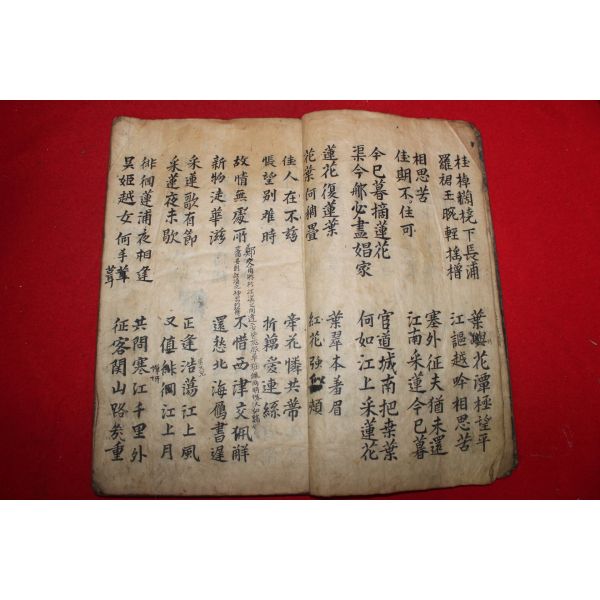 桂棹欄橈下長浦
羅裙玉腕輕搖櫓
葉嶼花潭極望平
江謳越吟相思苦
相思苦
佳期不住可
塞外征夫猶未還
江南采蓮今已暮
今已暮摘蓮花
渠今那必盡娼家
官道城南把桒葉
何如江上采蓮花
蓮花復蓮葉
花葉何稠疊
葉翠本羞眉
紅花強似頰
佳人在不茲
悵望別難時
牽花憐共蒂
折藕愛連絲
故情無處所
新物徒華滋
不惜西津交佩解
還愁北海鴈書遲
采連歌有節
采蓮夜未歇
正逢浩蕩江上風
又值徘徊江上月
徘徊蓮浦夜相逢
吳姬越女何手茸
茸
共問寒江千里外
征客関山路幾重